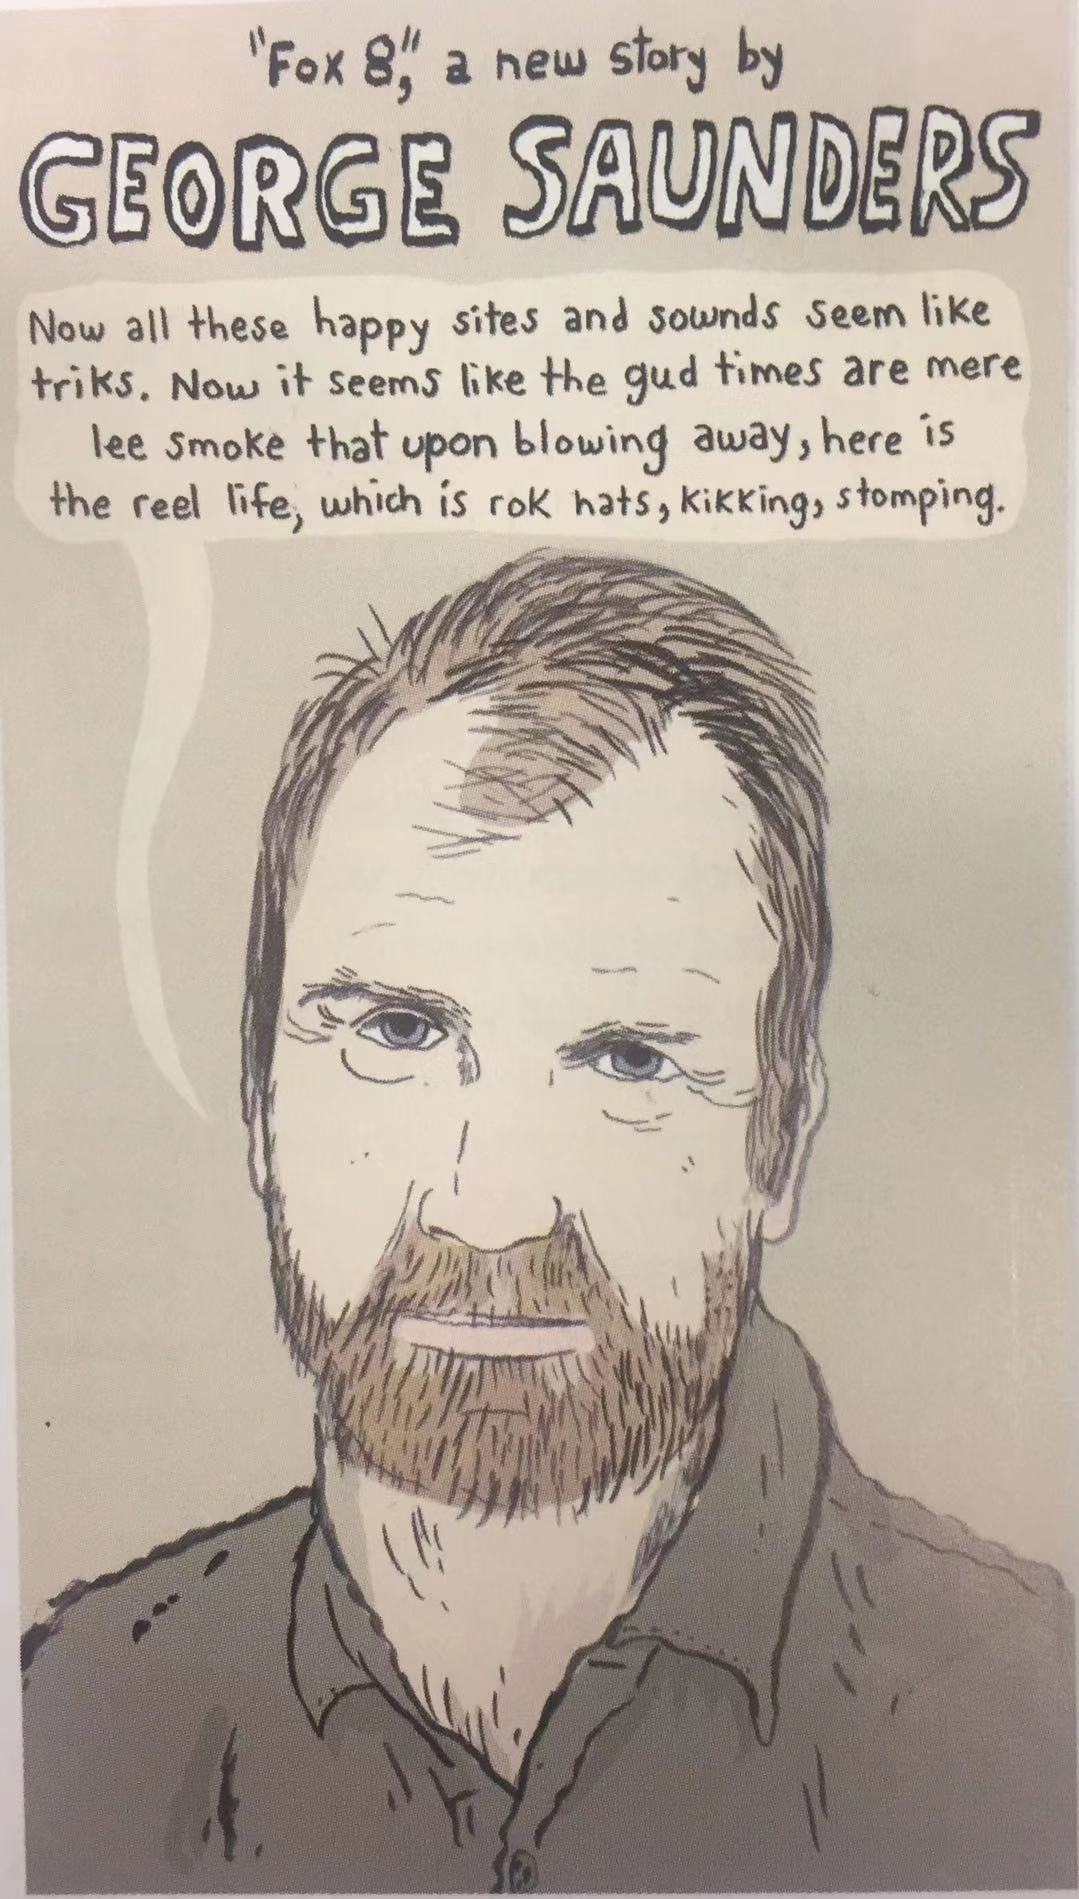 "Fox 8," a new story by
GEORGE SAUNDERS
Now all these happy sites and sownds seem like
triks. Now it seems like the gud times are mere
lee smoke that upon blowing away, here is
the reel life, which is rok hats, kikking, stomping.